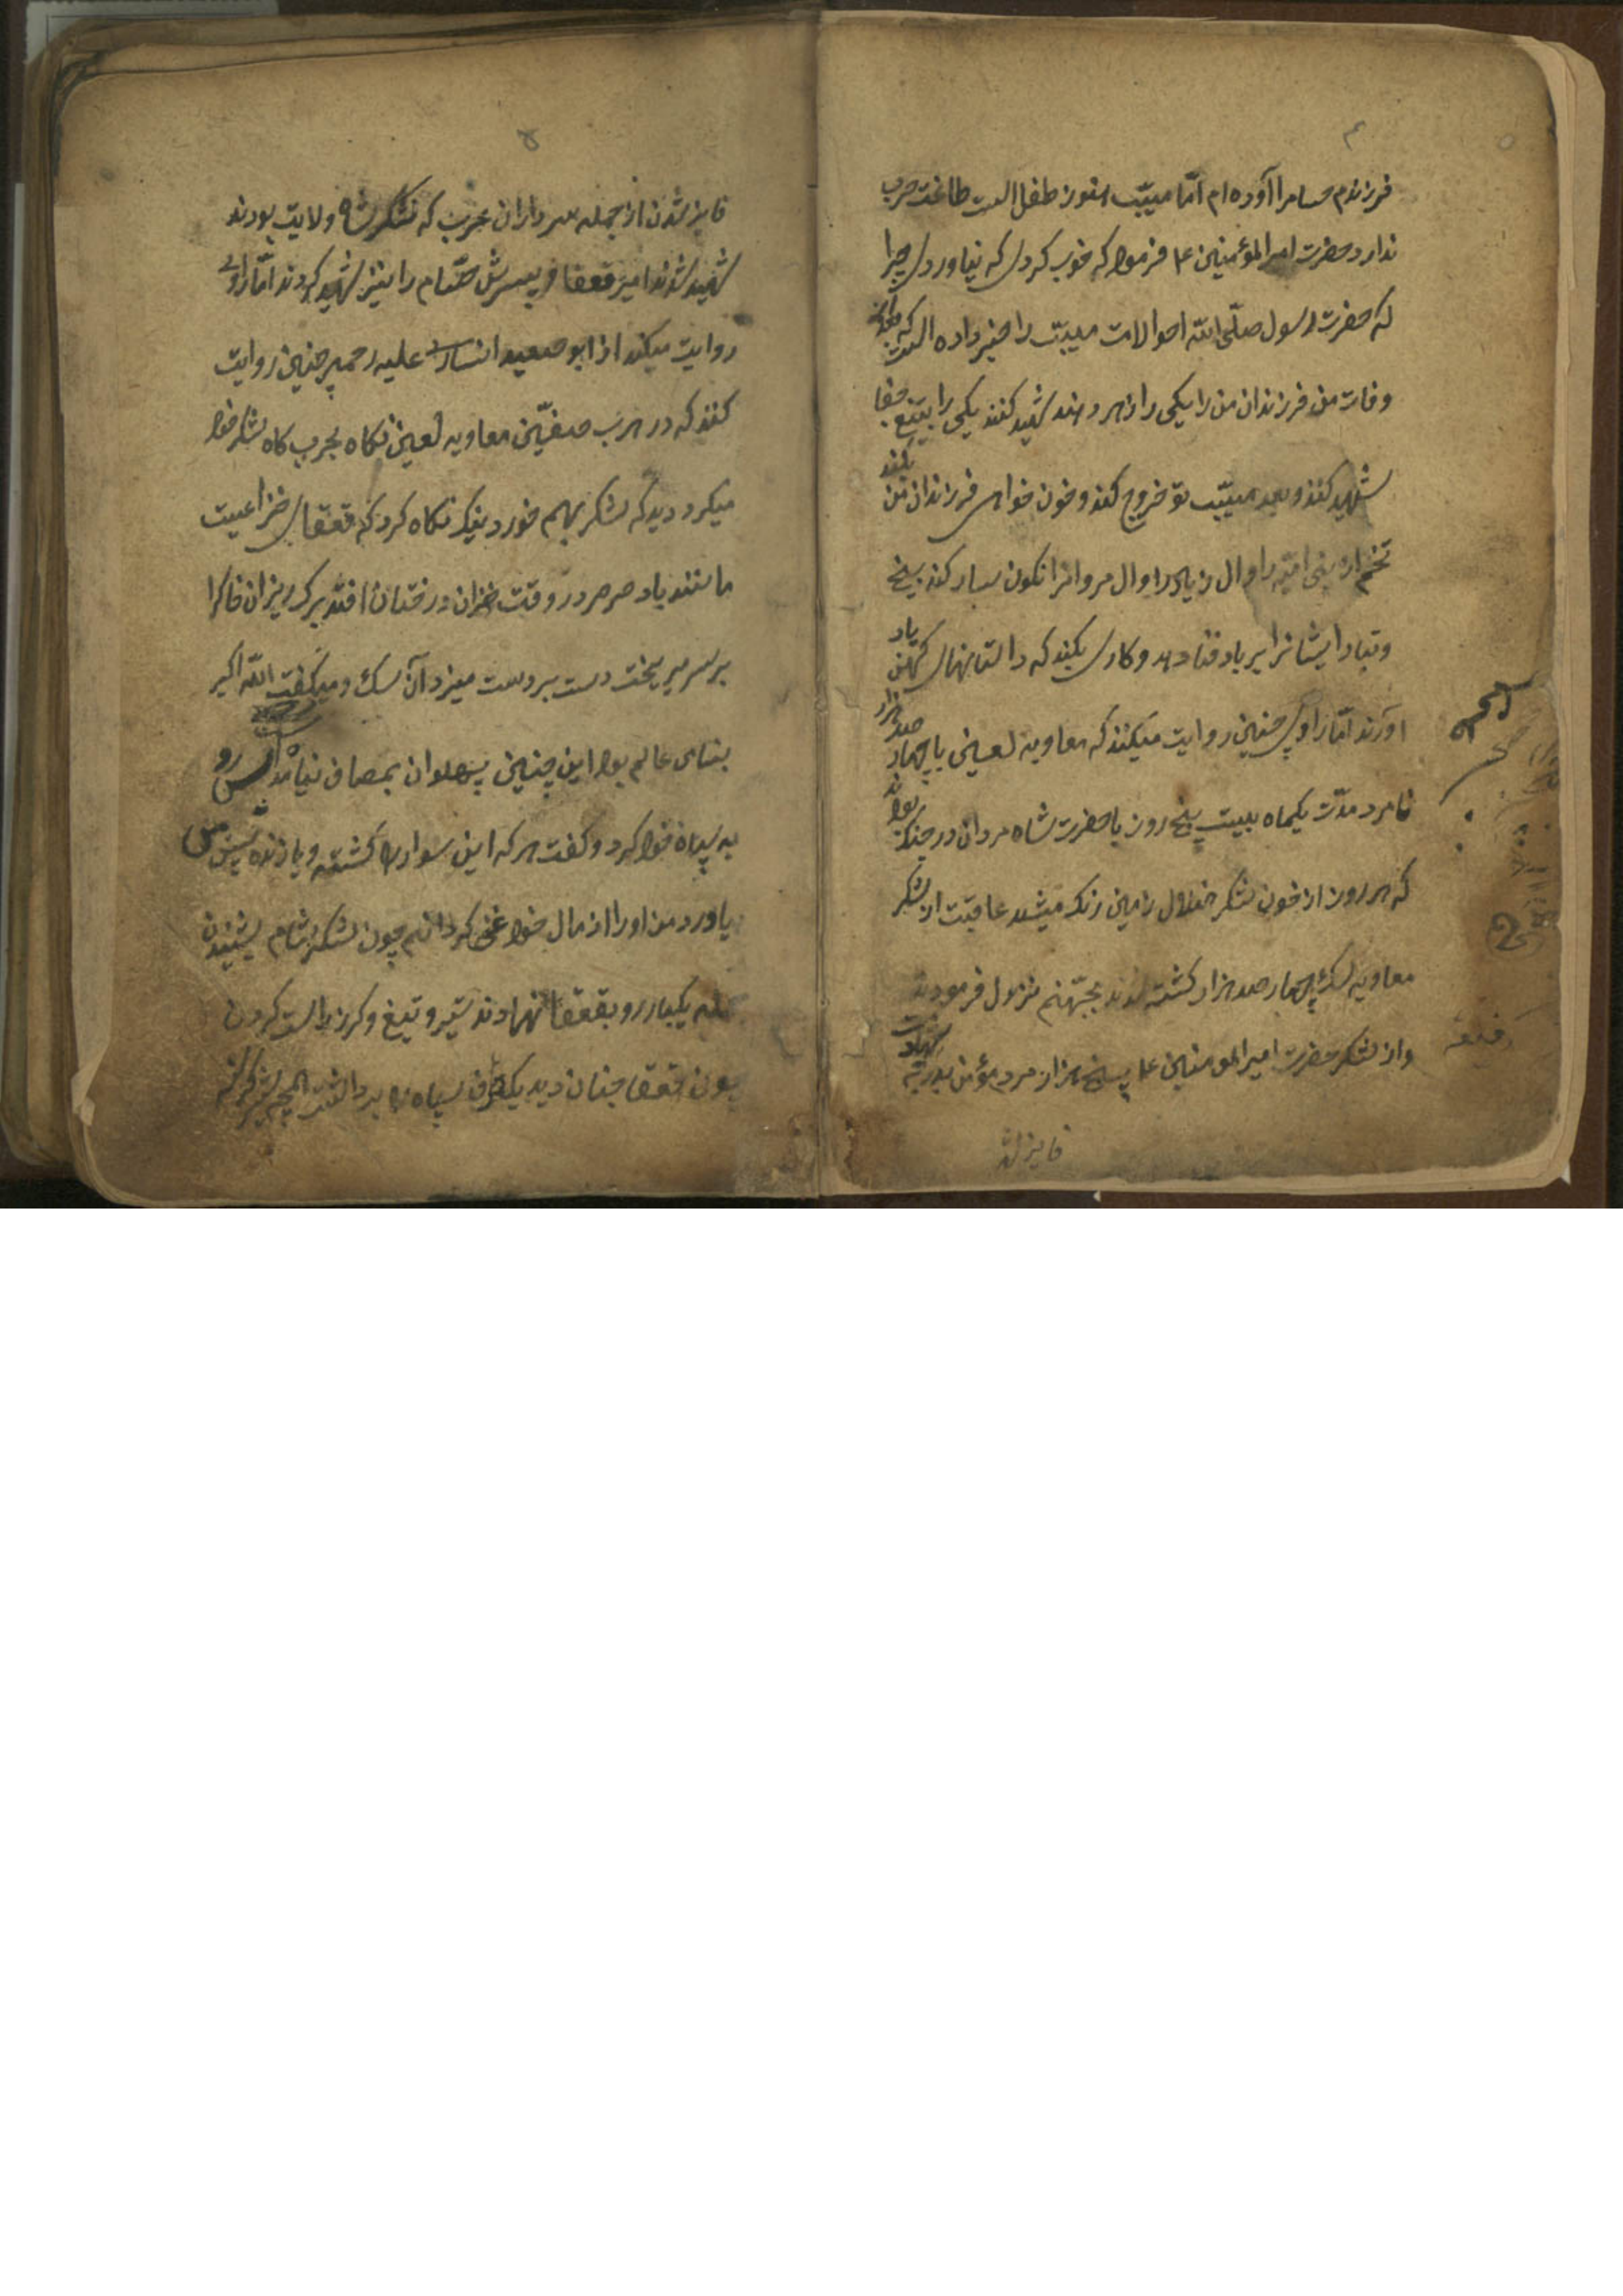 ۴
فرزندم حسامرا آورده ام امّا مسیّب هنوز طفل است طاغت حرب
ندارد حضرت امیرالمؤمنین ع‍ا فرمود که خوب کردی که نیاوردی چرا
که حضرت رسول صلّی الله احوالات مسیّب را خبر داده است که بعد
وفات من فرزندان من را یکی را زهر دهند شهید کنند یکی را بتیغ جفا
شهید کنند و بعد مسیّب تو خروج کند و خون خواهی فرزندان من بکند
تخم از بنی امیّه را و ال زیاد را و ال مروانرا نکون سار کند بیخ
و تبار ایشانرا بر باد فنا دهد و کاری بکند که داستانهای کهن یاد
اورند امّا راوی چنین روایت میکنند که معاویه لعین با چهار صد هزار
نامرد مدّت یکماه بیست پنج روز با حضرت شاه مردان در جنک بودند
که هر روز از خون لشکر ضلال زمین رنک میشد عاقبت از لشکر
معاویه سک چهار صد هزار کشته شدند بجهّنم نزول فرمودند
و از لشکر حضرت امیرالمومنین ع‍ا پنج هزار مرد مؤمن بدرجه شهادت
فایز شد
۵
فایز شدن از جمله سرداران عرب که لشکر شاه ولایت بودند
شهید شدند امیر قعقا و پسرش حسّام را نیز شهید کردند امّا راوی
روایت میکند از ابو صعید انساری علیه رحمه چنین روایت
کنند که در حرب صفیّن معاویه لعین نکاه بحرب کاه لشکر خود
میکرد دید که لشکر بهم خورد نیک نکاه کرد که قعقای خزاعیست
مانند باد صرصر در وقت خزان درختان افتد برک ریزان خاکرا
بر سر میریخت دست بر دست میزد آن سک و میکفت الله اکبر
بنای عالم بود این چنین پهلوان بمصاف نیامد پس رو
به سپاه خود کرد و کفت هر که این سوار را کشته و یا زنده پیش من
بیاورد من او را از مال خود غنی کردانم چون لشکر شام بشنیدن
همه یکبار رو بقعقا نهادند تیر و تیغ و کرز راست کردن
چون قعقا چنان دید یکطرف سپاه را برداشت